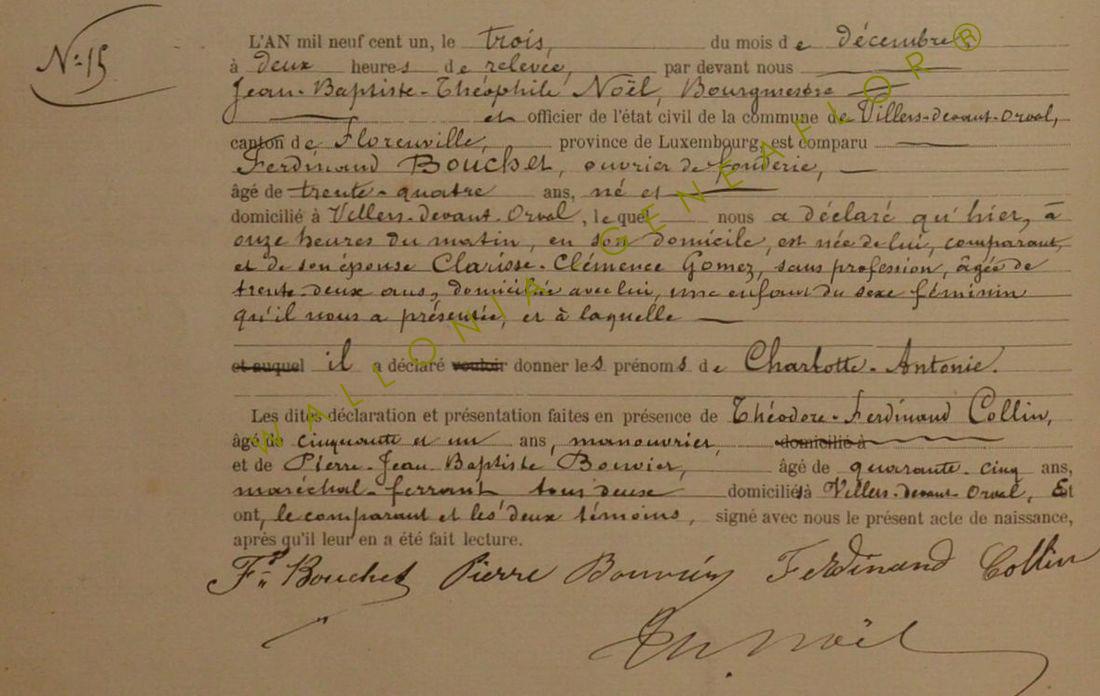 N° 15
L'AN mil neuf cent un, le trois, du mois de décembre,
à deux heures de relevée, par devant nous
Jean-Baptiste-Théophile Noël, Bourgmestre
et officier de l'état civil de la commune de Villers-devant-Orval,
canton de Florenville, province de Luxembourg, est comparu
Ferdinand Bouchet, ouvrier de fonderie,
âgé de trente-quatre ans, né et
domicilié à Villers-devant-Orval, lequel nous a déclaré qu'hier, à
onze heures du matin, en son domicile, est née de lui, comparant,
et de son épouse Clarisse-Clémence Gomez, sans profession, âgée de
trente-deux ans, domiciliée avec lui, une enfant du sexe féminin
qu'il nous a présentée, et à laquelle
et auquel il a déclaré vouloir donner les prénoms de Charlotte-Antonie.
Les dites déclaration et présentation faites en présence de Théodore-Ferdinand Collin,
âgé de cinquante et un ans, manouvrier, domicilié à
et de Pierre-Jean-Baptiste Bouvier, âgé de quarante-cinq ans,
maréchal-ferrant tous deux domiciliés à Villers-devant-Orval, Et
ont, le comparant et les deux témoins, signé avec nous le présent acte de naissance,
après qu'il leur en a été fait lecture.
Fd Bouchet Pierre Bouvier Ferdinand Collin
Th. Noël
WALLONIA GENEAFLOR ®